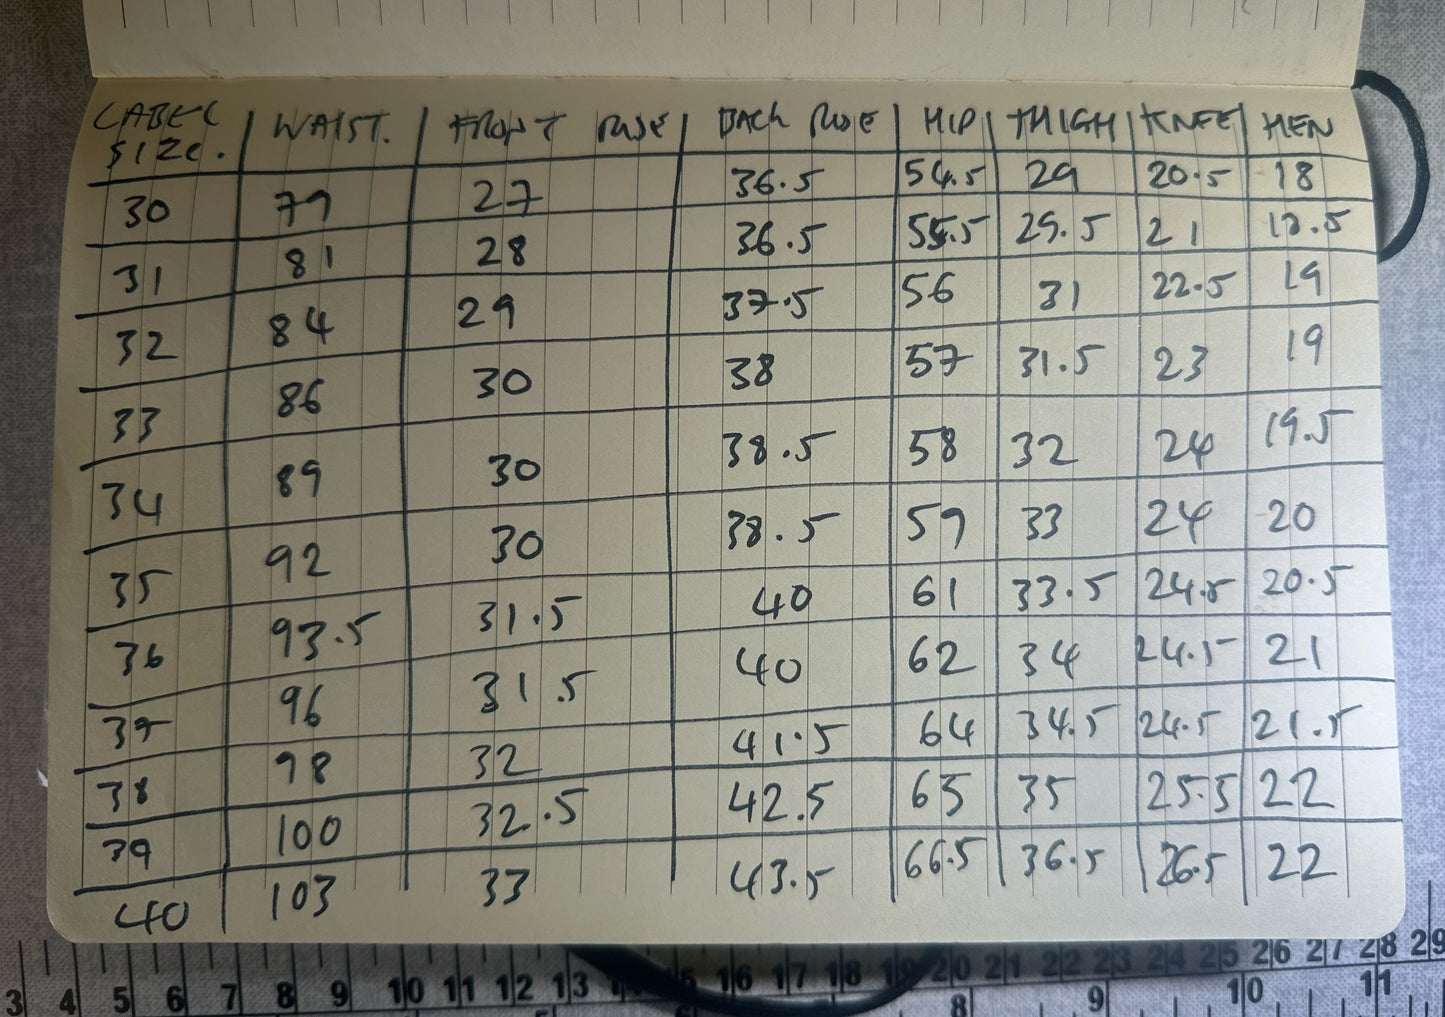 LABEL SIZE. WAIST. FRONT RISE BACK RISE HIP THIGH KNEE HEM
30 79 27 36.5 54.5 29 20.5 18
31 81 28 36.5 55.5 29.5 21 18.5
32 84 29 37.5 56 31 22.5 19
33 86 30 38 57 31.5 23 19
34 89 30 38.5 58 32 24 19.5
35 92 30 38.5 59 33 24 20
36 93.5 31.5 40 61 33.5 24.5 20.5
37 96 31.5 40 62 34 24.5 21
38 98 32 41.5 64 34.5 24.5 21.5
39 100 32.5 42.5 65 35 25.5 22
40 103 33 43.5 66.5 36.5 26.5 22
3 4 5 6 7 8 9 10 11 12 13 16 17 18 19 20 21 22 23 24 25 26 27 28 29
8 9 10 11